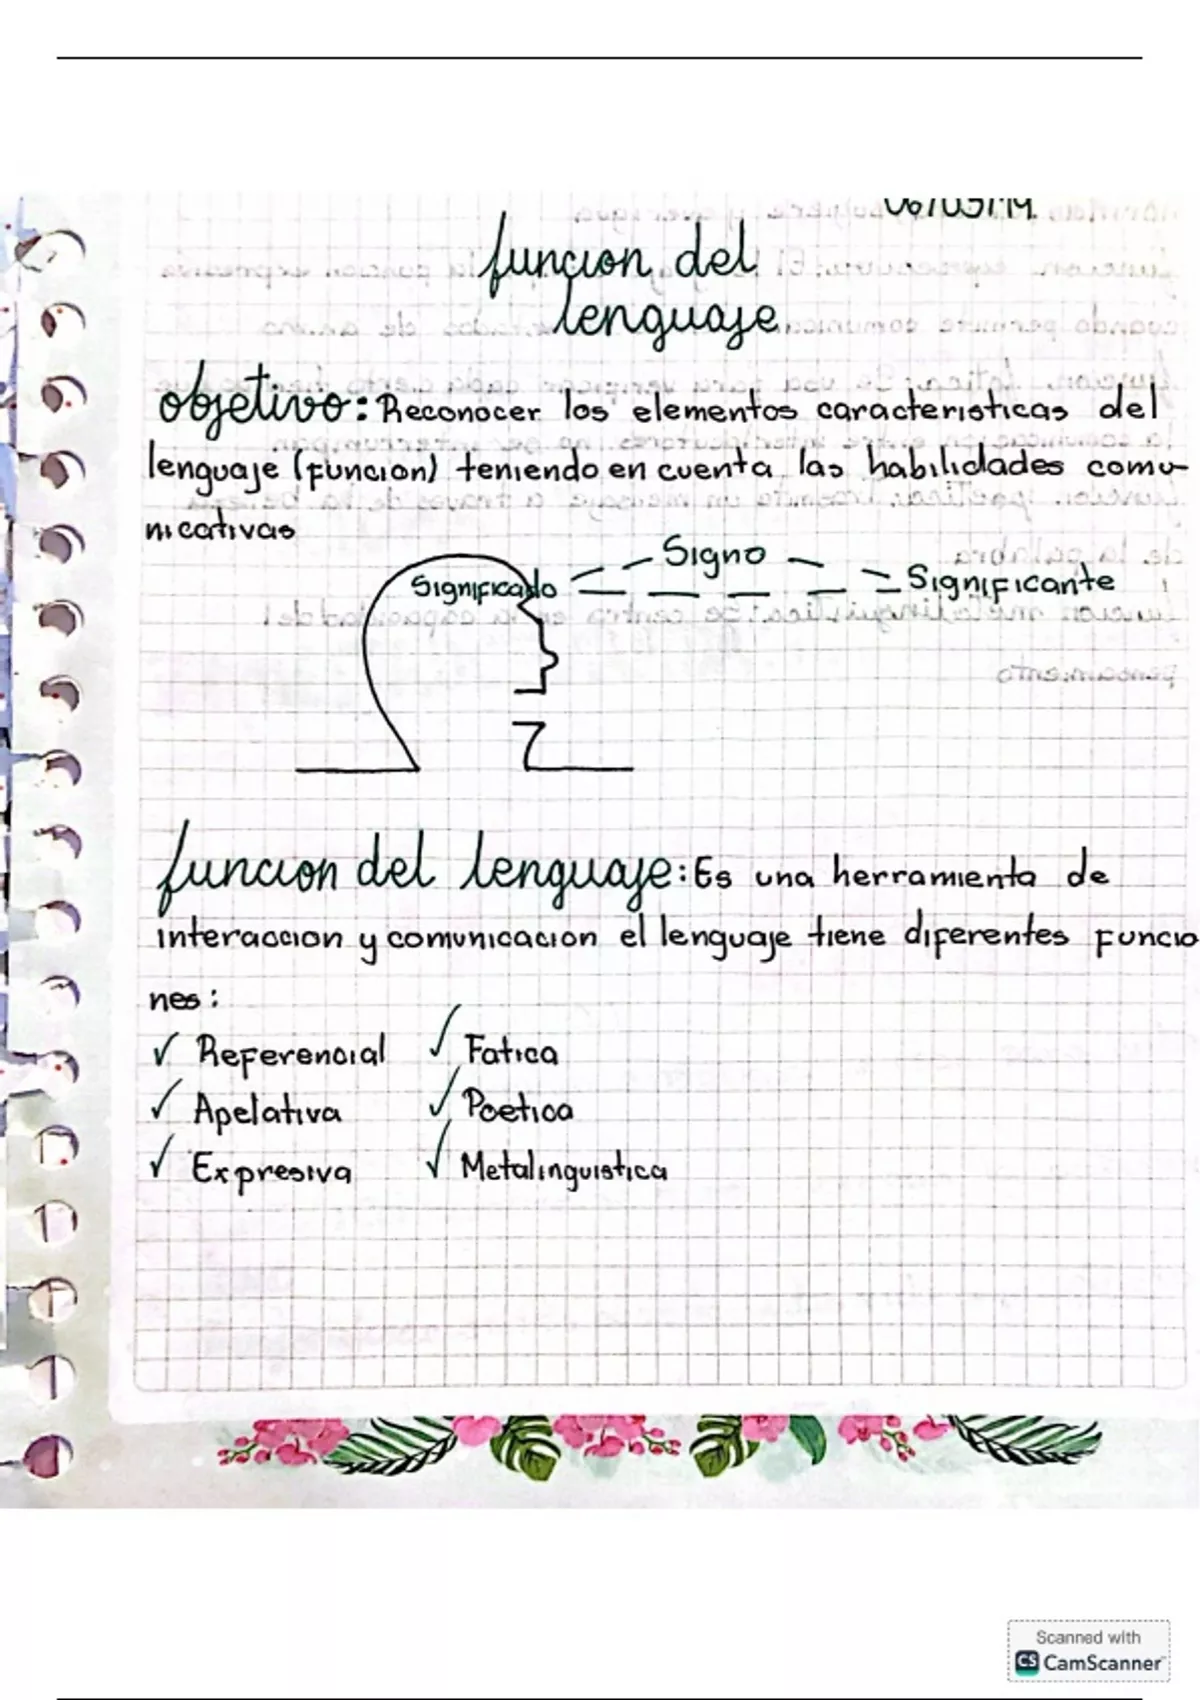 funcion del
lenguaje
objetivo: Reconocer los elementos caracteristicas del
lenguaje (funcion) teniendo en cuenta las habilidades comu-
nicativas
Signo
Significado
Significante
funcion del lenguaje: Es una herramienta de
interaccion y comunicacion el lenguaje tiene diferentes funcio
nes:
✓ Referencial ✓ Fatica
✓ Apelativa ✓ Poetica
✓ Expresiva ✓ Metalinguistica
Scanned with
CS CamScanner